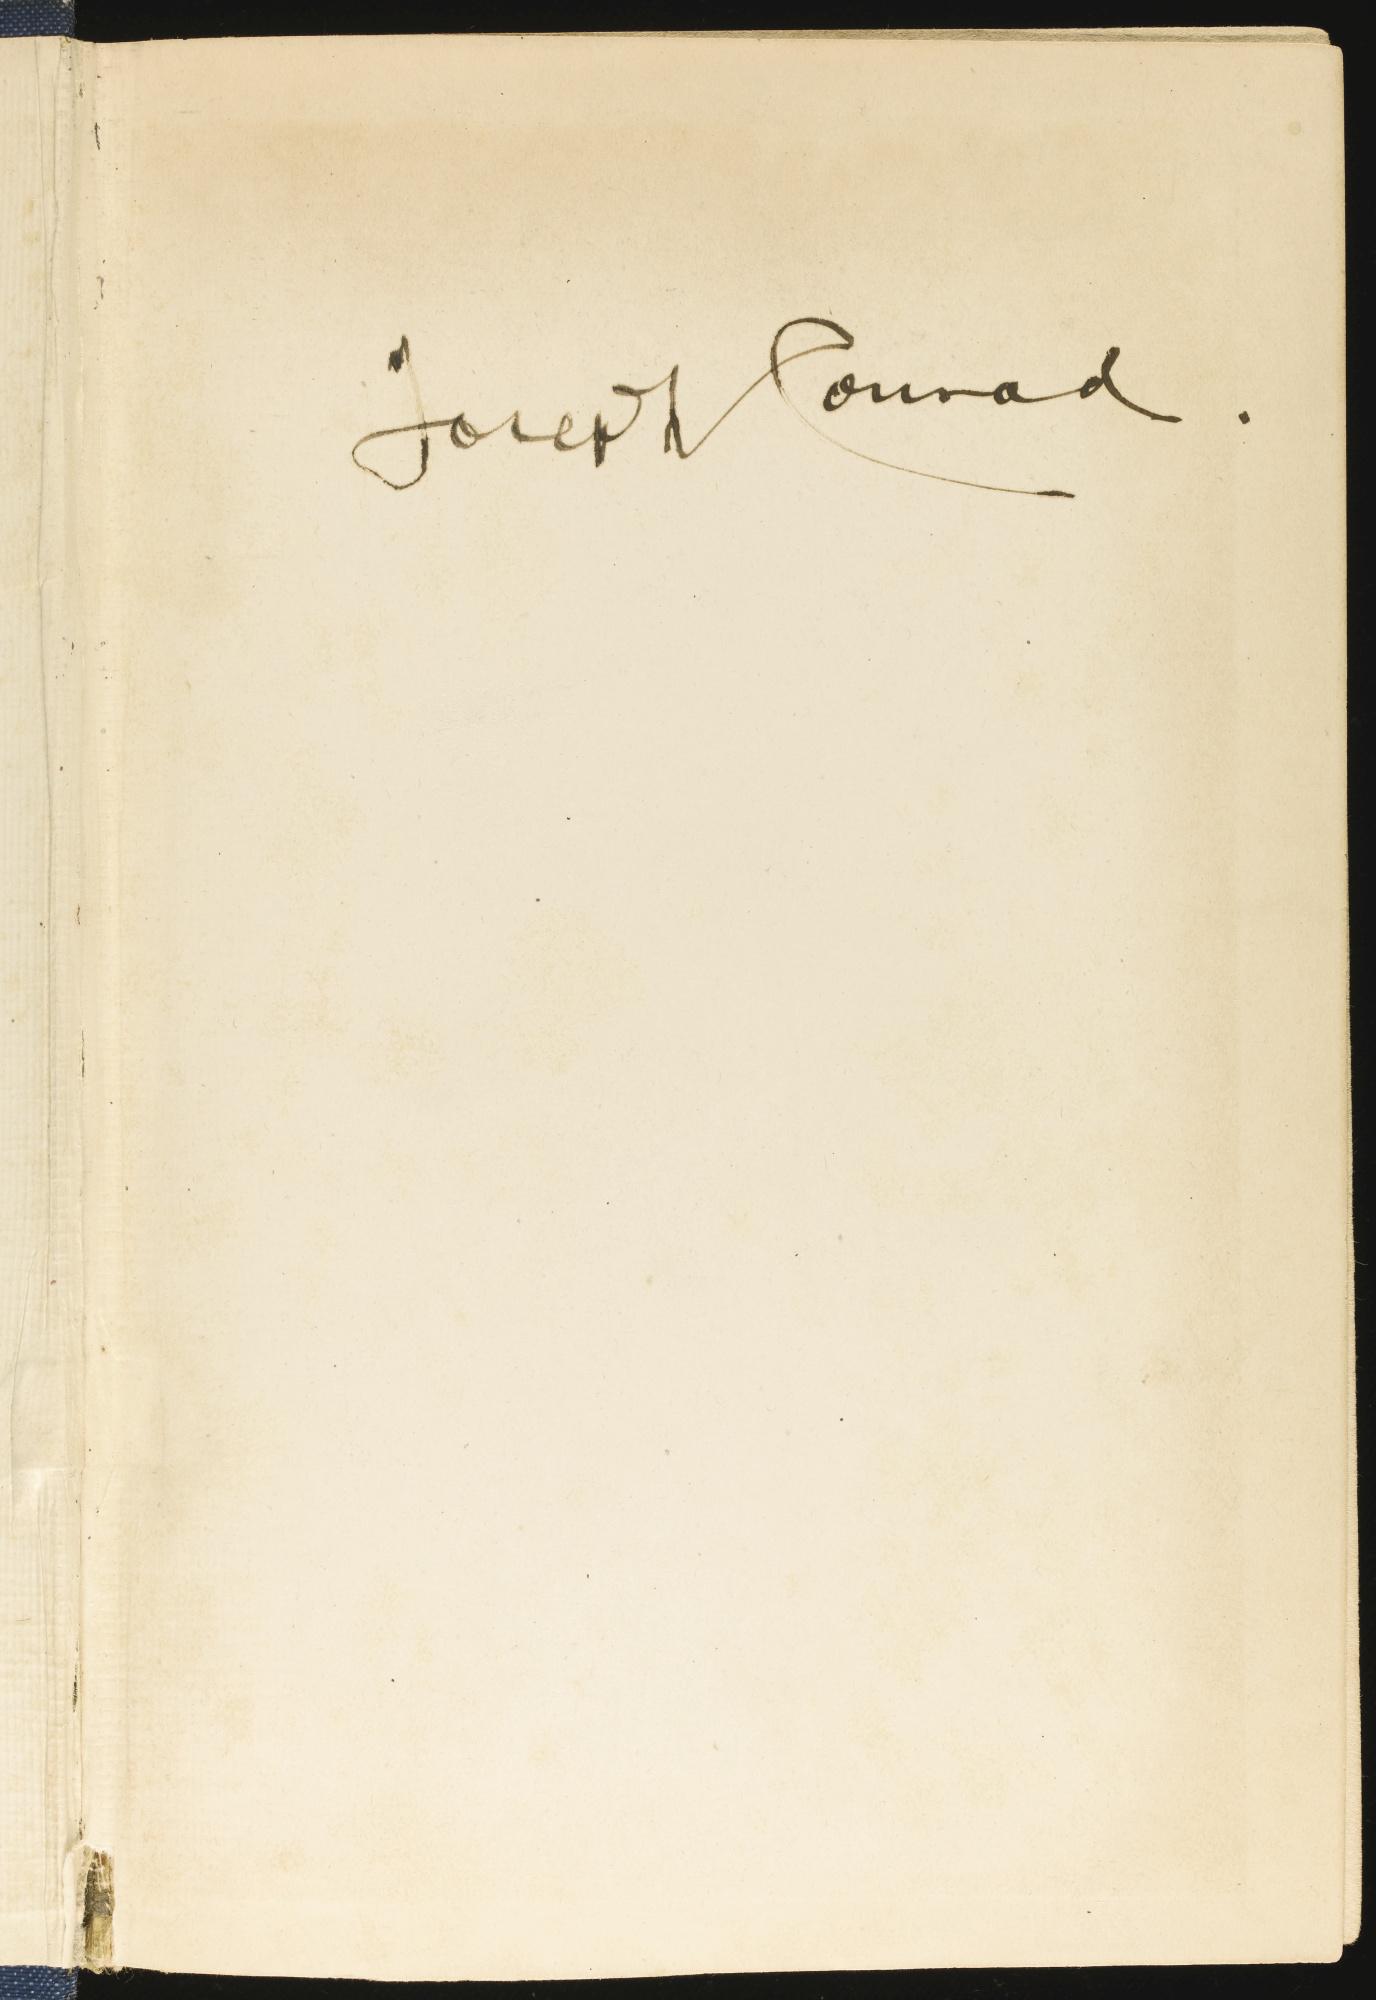 Joseph Conrad.